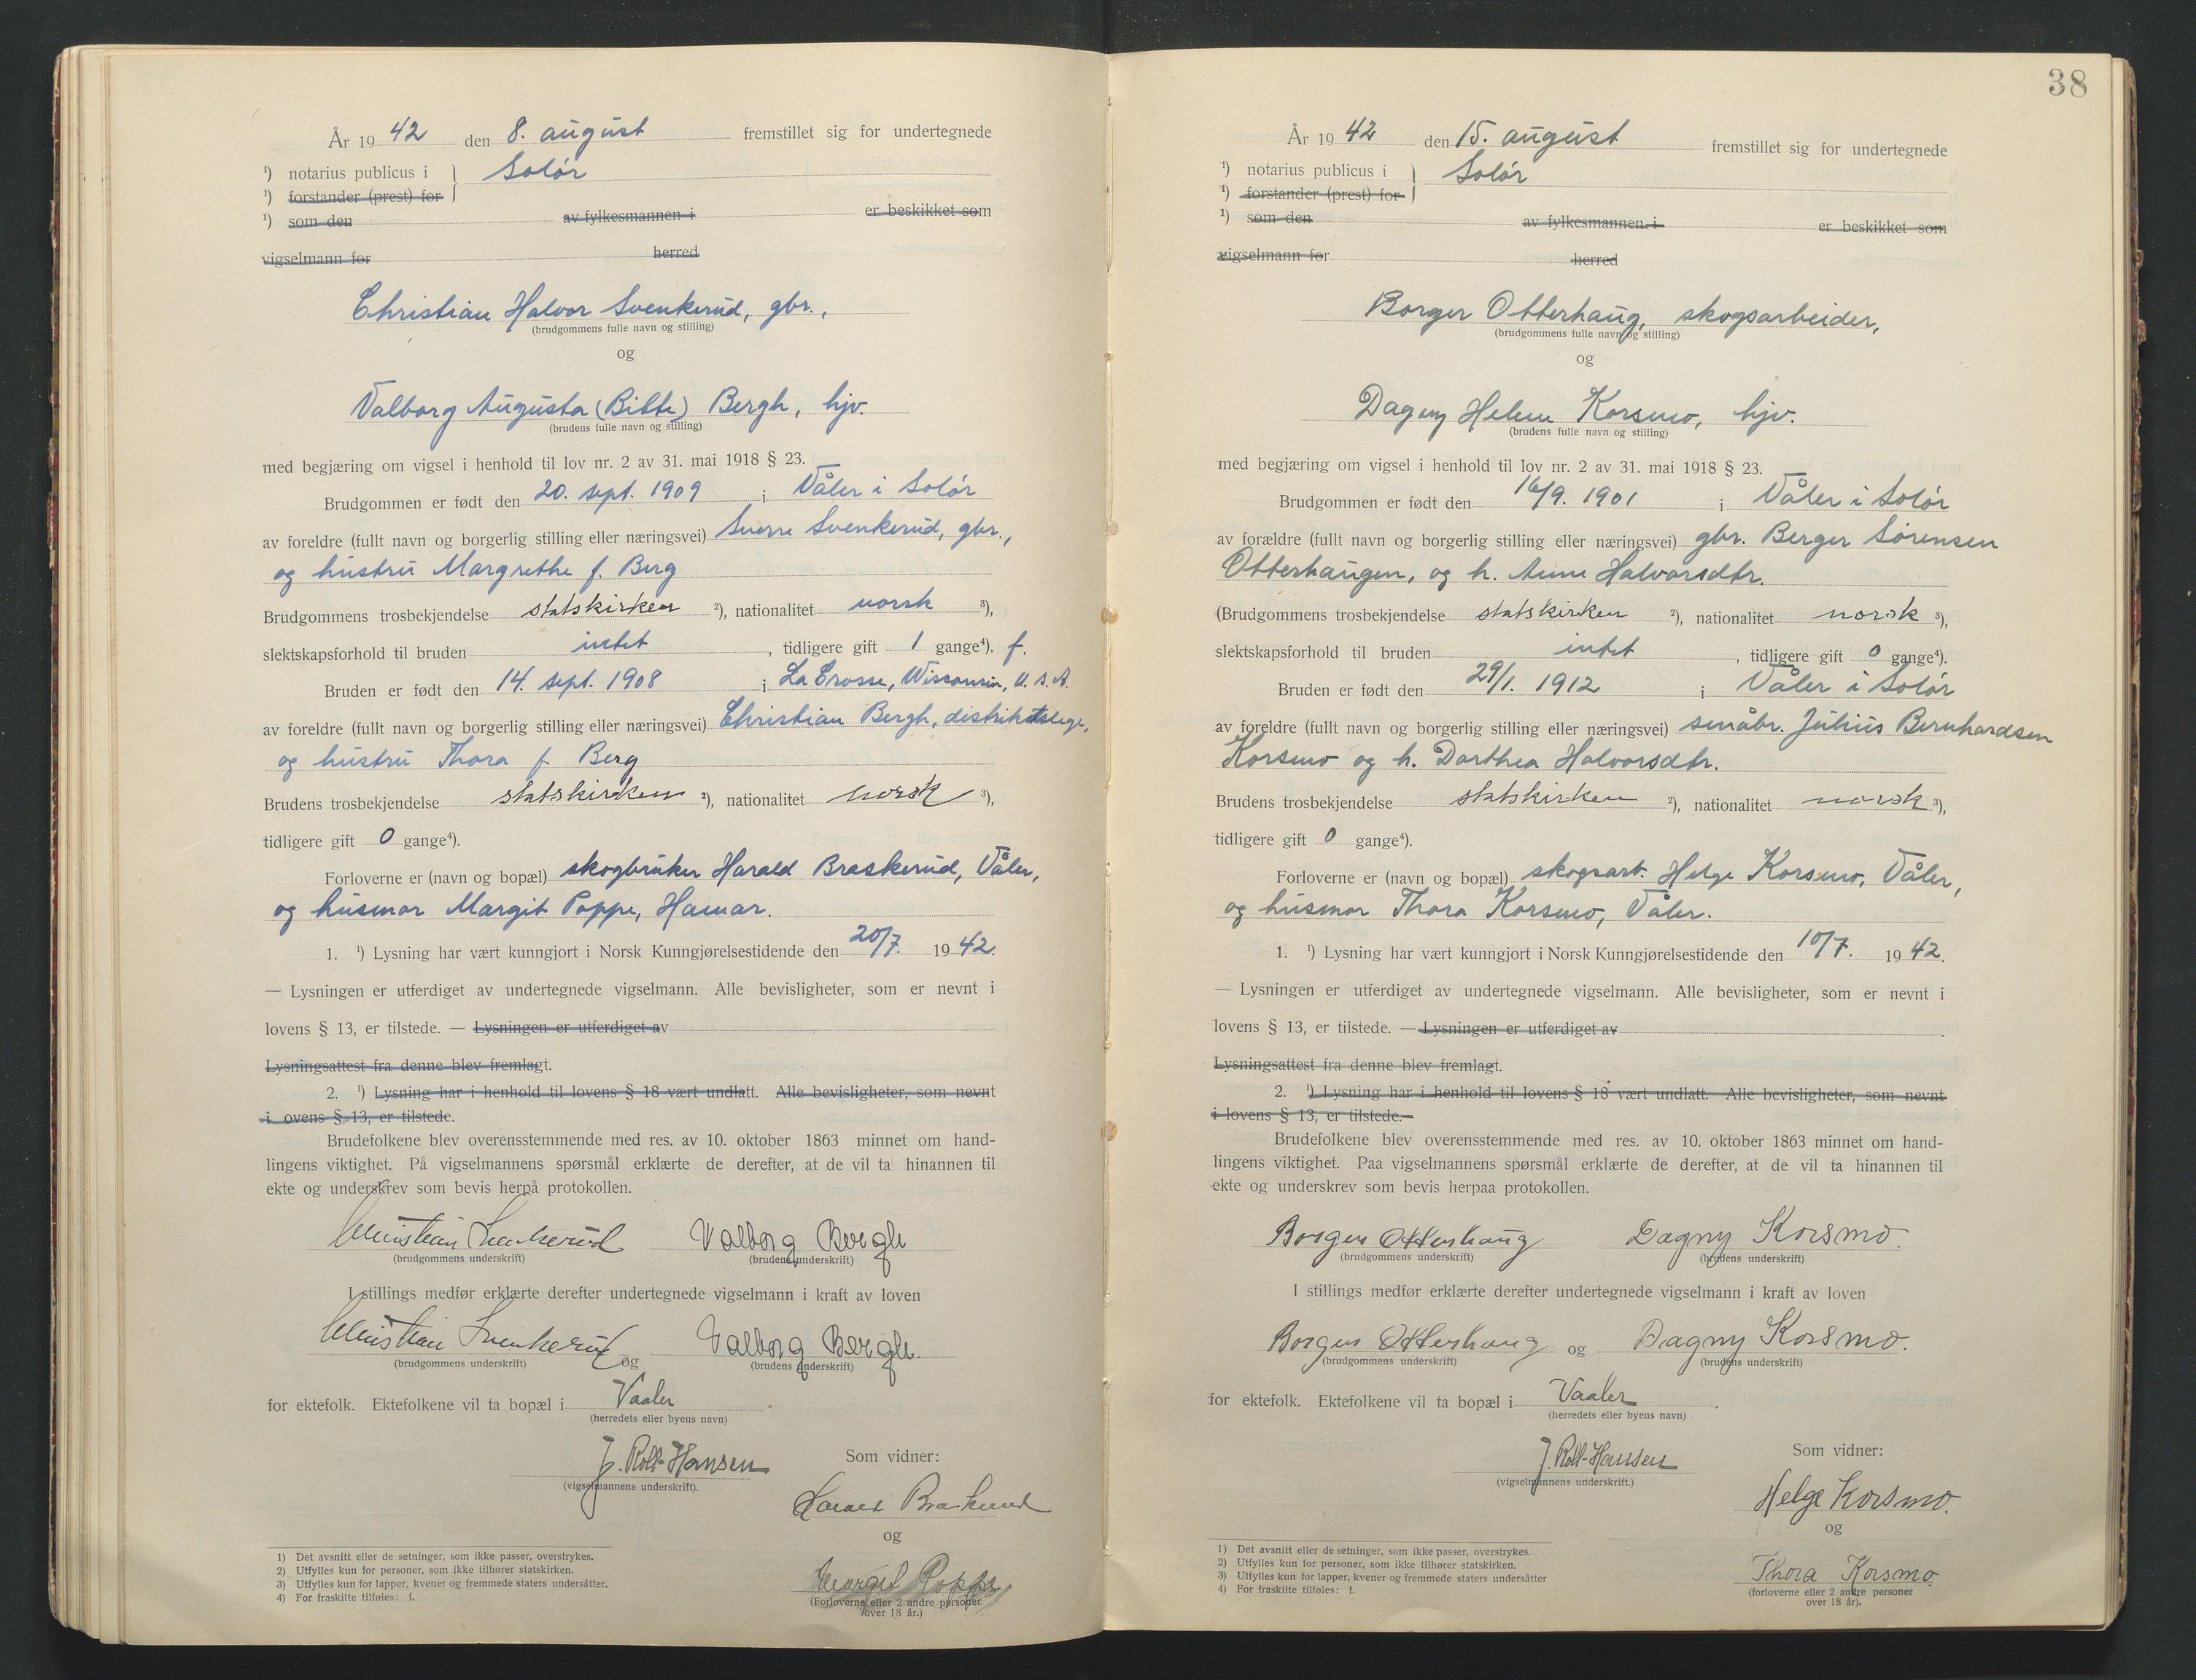 År 19 42 den 8. august fremstillet sig for undertegnede
¹) notarius publicus i } Solør
¹) forstander (prest) for
¹) som den av fylkesmannen i er beskikket som
vigselmann for herred
Christian Halvor Svenkerud, gbr.,
(brudgommens fulle navn og stilling)
og
Valborg Augusta (Bitte) Bergh, hjv.
(brudens fulle navn og stilling)
med begjæring om vigsel i henhold til lov nr. 2 av 31. mai 1918 § 23.
Brudgommen er født den 20. sept. 1909 i Våler i Solør
av foreldre (fullt navn og borgerlig stilling eller næringsvei) Sverre Svenkerud, gbr.,
og hustru Margrethe f. Berg
Brudgommens trosbekjendelse statskirken ²), nationalitet norsk ³),
slektskapsforhold til bruden intet , tidligere gift 1 gange⁴). f.
Bruden er født den 14. sept. 1908 i La Crosse, Wisconsin, U.S.A.
av foreldre (fullt navn og borgerlig stilling eller næringsvei) Christian Bergh, distriktslege,
og hustru Thora f. Berg
Brudens trosbekjendelse statskirken ²), nationalitet norsk ³),
tidligere gift 0 gange⁴).
Forloverne er (navn og bopæl) skogbruker Harald Braskerud, Våler,
og husmor Margit Poppe, Hamar.
1. ¹) Lysning har vært kunngjort i Norsk Kunngjørelsestidende den 20/7. 19 42.
— Lysningen er utferdiget av undertegnede vigselmann. Alle bevisligheter, som er nevnt i
lovens § 13, er tilstede. — Lysningen er utferdiget av
Lysningsattest fra denne blev fremlagt.
2. ¹) Lysning har i henhold til lovens § 18 vært undlatt. Alle bevisligheter, som nevnt
i ovens § 13, er tilstede.
Brudefolkene blev overensstemmende med res. av 10. oktober 1863 minnet om hand-
lingens viktighet. På vigselmannens spørsmål erklærte de derefter, at de vil ta hinannen til
ekte og underskrev som bevis herpå protokollen.
Christian Svenkerud Valborg Bergh
(brudgommens underskrift) (brudens underskrift)
I stillings medfør erklærte derefter undertegnede vigselmann i kraft av loven
Christian Svenkerud og Valborg Bergh.
(brudgommens underskrift) (brudens underskrift)
for ektefolk. Ektefolkene vil ta bopæl i Vaaler
(herredets eller byens navn)
J. Roll-Hansen Som vidner:
(vigselmannens underskrift).
Harald Braskerud
og
Margit Poppe
(Forloverne eller 2 andre personer
over 18 år.)
1) Det avsnitt eller de setninger, som ikke passer, overstrykes.
2) Utfylles kun for personer, som ikke tilhører statskirken.
3) Utfylles kun for lapper, kvener og fremmede staters undersåtter.
4) For fraskilte tilføies: f.
38
År 19 42 den 15. august fremstillet sig for undertegnede
¹) notarius publicus i } Solør
¹) forstander (prest) for
¹) som den av fylkesmannen i er beskikket som
vigselmann for herred
Borger Otterhaug, skogsarbeider,
(brudgommens fulle navn og stilling)
og
Dagny Helene Korsmo, hjv.
(brudens fulle navn og stilling)
med begjæring om vigsel i henhold til lov nr. 2 av 31. mai 1918 § 23.
Brudgommen er født den 16/9. 1901 i Våler i Solør
av forældre (fullt navn og borgerlig stilling eller næringsvei) gbr. Berger Sørensen
Otterhaugen, og h. Anne Halvorsdtr.
(Brudgommens trosbekjendelse statskirken ²), nationalitet norsk ³),
slektskapsforhold til bruden intet , tidligere gift 0 gange⁴).
Bruden er født den 29/1. 1912 i Våler i Solør
av foreldre (fullt navn og borgerlig stilling eller næringsvei) småbr. Julius Bernhardsen
Korsmo og h. Dorthea Halvorsdtr.
Brudens trosbekjendelse statskirken ²), nationalitet norsk ³),
tidligere gift 0 gange⁴).
Forloverne er (navn og bopæl) skogsarb. Helge Korsmo, Våler,
og husmor Thora Korsmo, Våler.
1. ¹) Lysning har vært kunngjort i Norsk Kunngjørelsestidende den 10/7. 19 42.
— Lysningen er utferdiget av undertegnede vigselmann. Alle bevisligheter, som er nevnt i
lovens § 13, er tilstede. — Lysningen er utferdiget av .
Lysningsattest fra denne blev fremlagt.
2. ¹) Lysning har i henhold til lovens § 18 vært undlatt. Alle bevisligheter, som nevnt
i lovens § 13, er tilstede.
Brudefolkene blev overensstemmende med res. av 10. oktober 1863 minnet om hand-
lingens viktighet. Paa vigselmannens spørsmål erklærte de derefter, at de vil ta hinannen til
ekte og underskrev som bevis herpaa protokollen.
Borger Otterhaug Dagny Korsmo.
(brudgommens underskrift) (brudens underskrift)
I stillings medfør erklærte derefter undertegnede vigselmann i kraft av loven
Borger Otterhaug og Dagny Korsmo.
(brudgommens underskrift) (brudens underskrift)
for ektefolk. Ektefolkene vil ta bopæl i Vaaler .
(herredets eller byens navn)
J. Roll-Hansen Som vidner:
(vigselmannens underskrift.)
Helge Korsmo.
og
Thora Korsmo.
(forloverne eller 2 andre personer
over 18 år).
1) Det avsnitt eller de setninger, som ikke passer, overstrykes.
2) Utfylles kun for personer, som ikke tilhører statskirken.
3) Utfylles kun for lapper, kvener og fremmede staters undersåtter
4) For fraskilte tilføies: f.